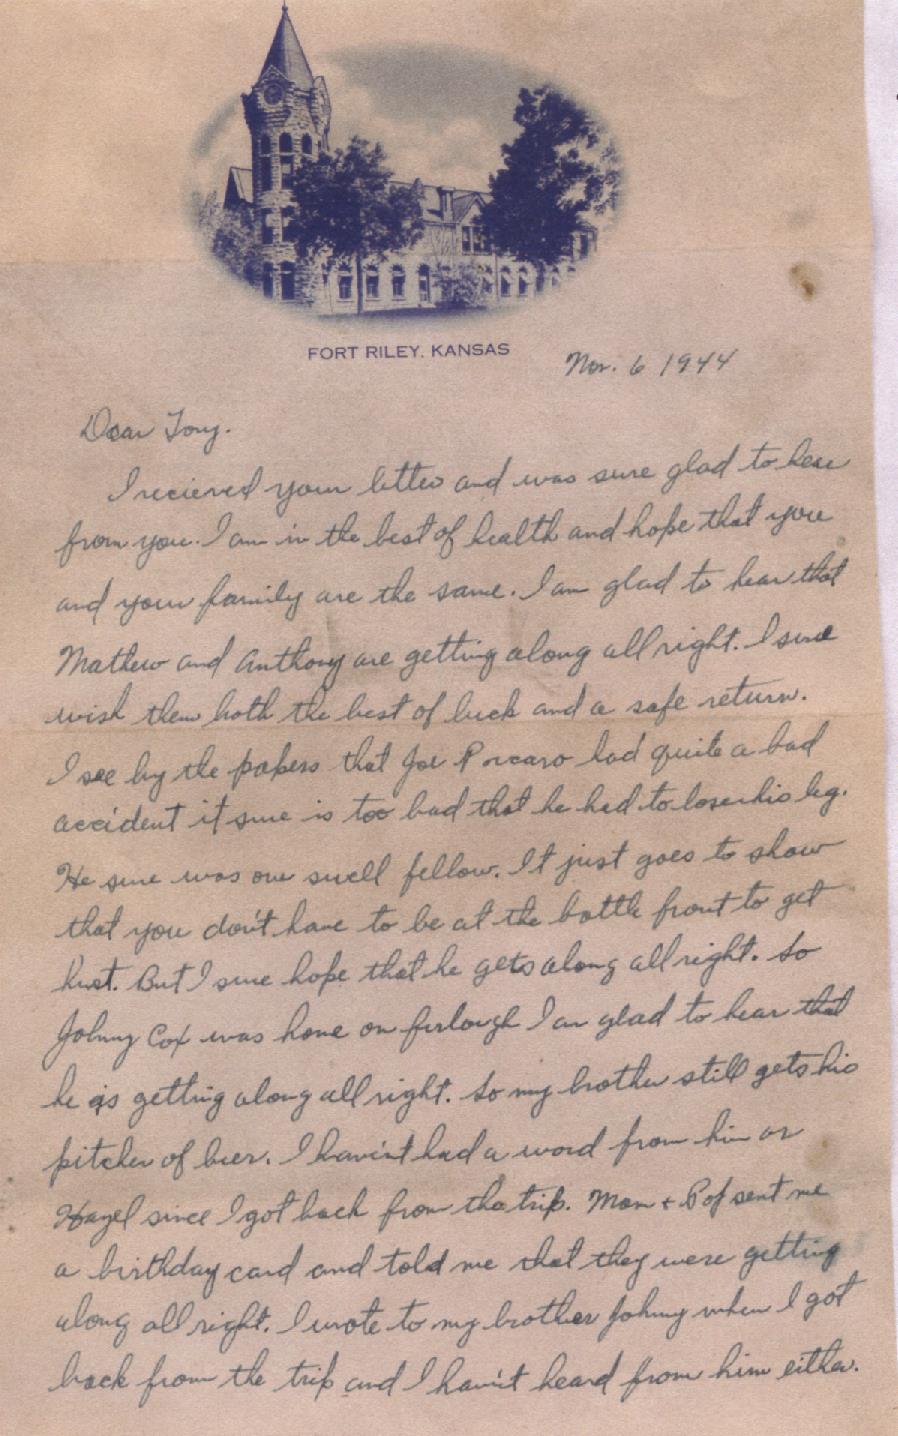 FORT RILEY, KANSAS
Nov. 6 1944
Dear Tony.
I recieved your letter and was sure glad to hear
from you. I am in the best of health and hope that you
and your family are the same. I am glad to hear that
Mathew and Anthony are getting along all right. I sure
wish them both the best of luck and a safe return.
I see by the papers that Joe Porcaro had quite a bad
accident it sure is too bad that he had to lose his leg.
He sure was one swell fellow. It just goes to show
that you don't have to be at the battle front to get
hurt. But I sure hope that he gets along all right. So
Johny Cox was home on furlough I am glad to hear that
he is getting along all right. So my brother still gets his
pitcher of beer. I havin't had a word from him or
Hazel since I got back from the trip. Mom & Pop sent me
a birthday card and told me that they were getting
along all right. I wrote to my brother Johny when I got
back from the trip and I havin't heard from him either.